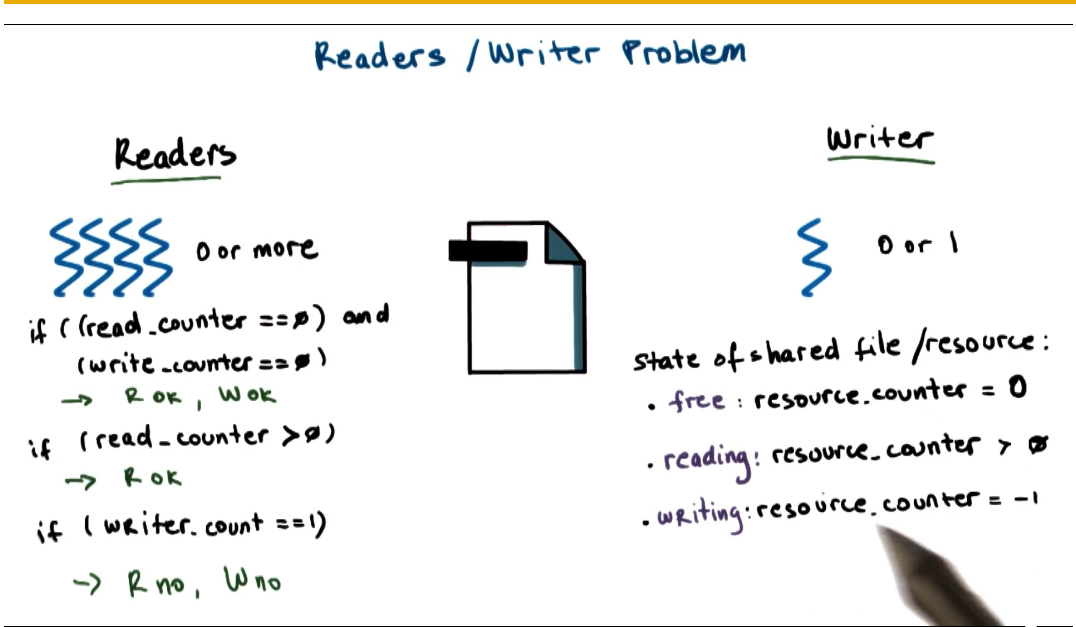 Readers / Writer Problem
Readers
0 or more
if ((read_counter == ø) and
(write_counter == ø)
→ R ok, W ok
if (read_counter > ø)
→ R ok
if (writer_count == 1)
→ R no, W no
Writer
0 or 1
state of shared file/resource:
• free: resource_counter = 0
• reading: resource_counter > ø
• writing: resource_counter = -1